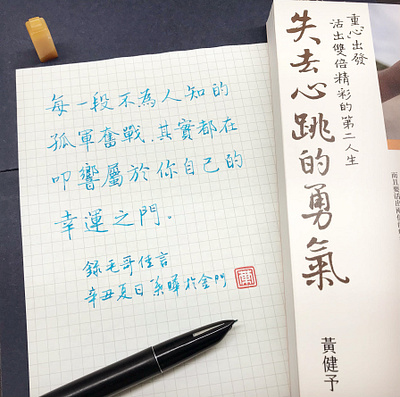 每一段不為人知的
孤軍奮戰,其實都在
叩響屬於你自己的
幸運之門。
錄毛哥佳言
辛丑夏日 葉曄於金門
重心出發
活出雙倍精彩的第二人生
失去心跳的勇氣
黃健予